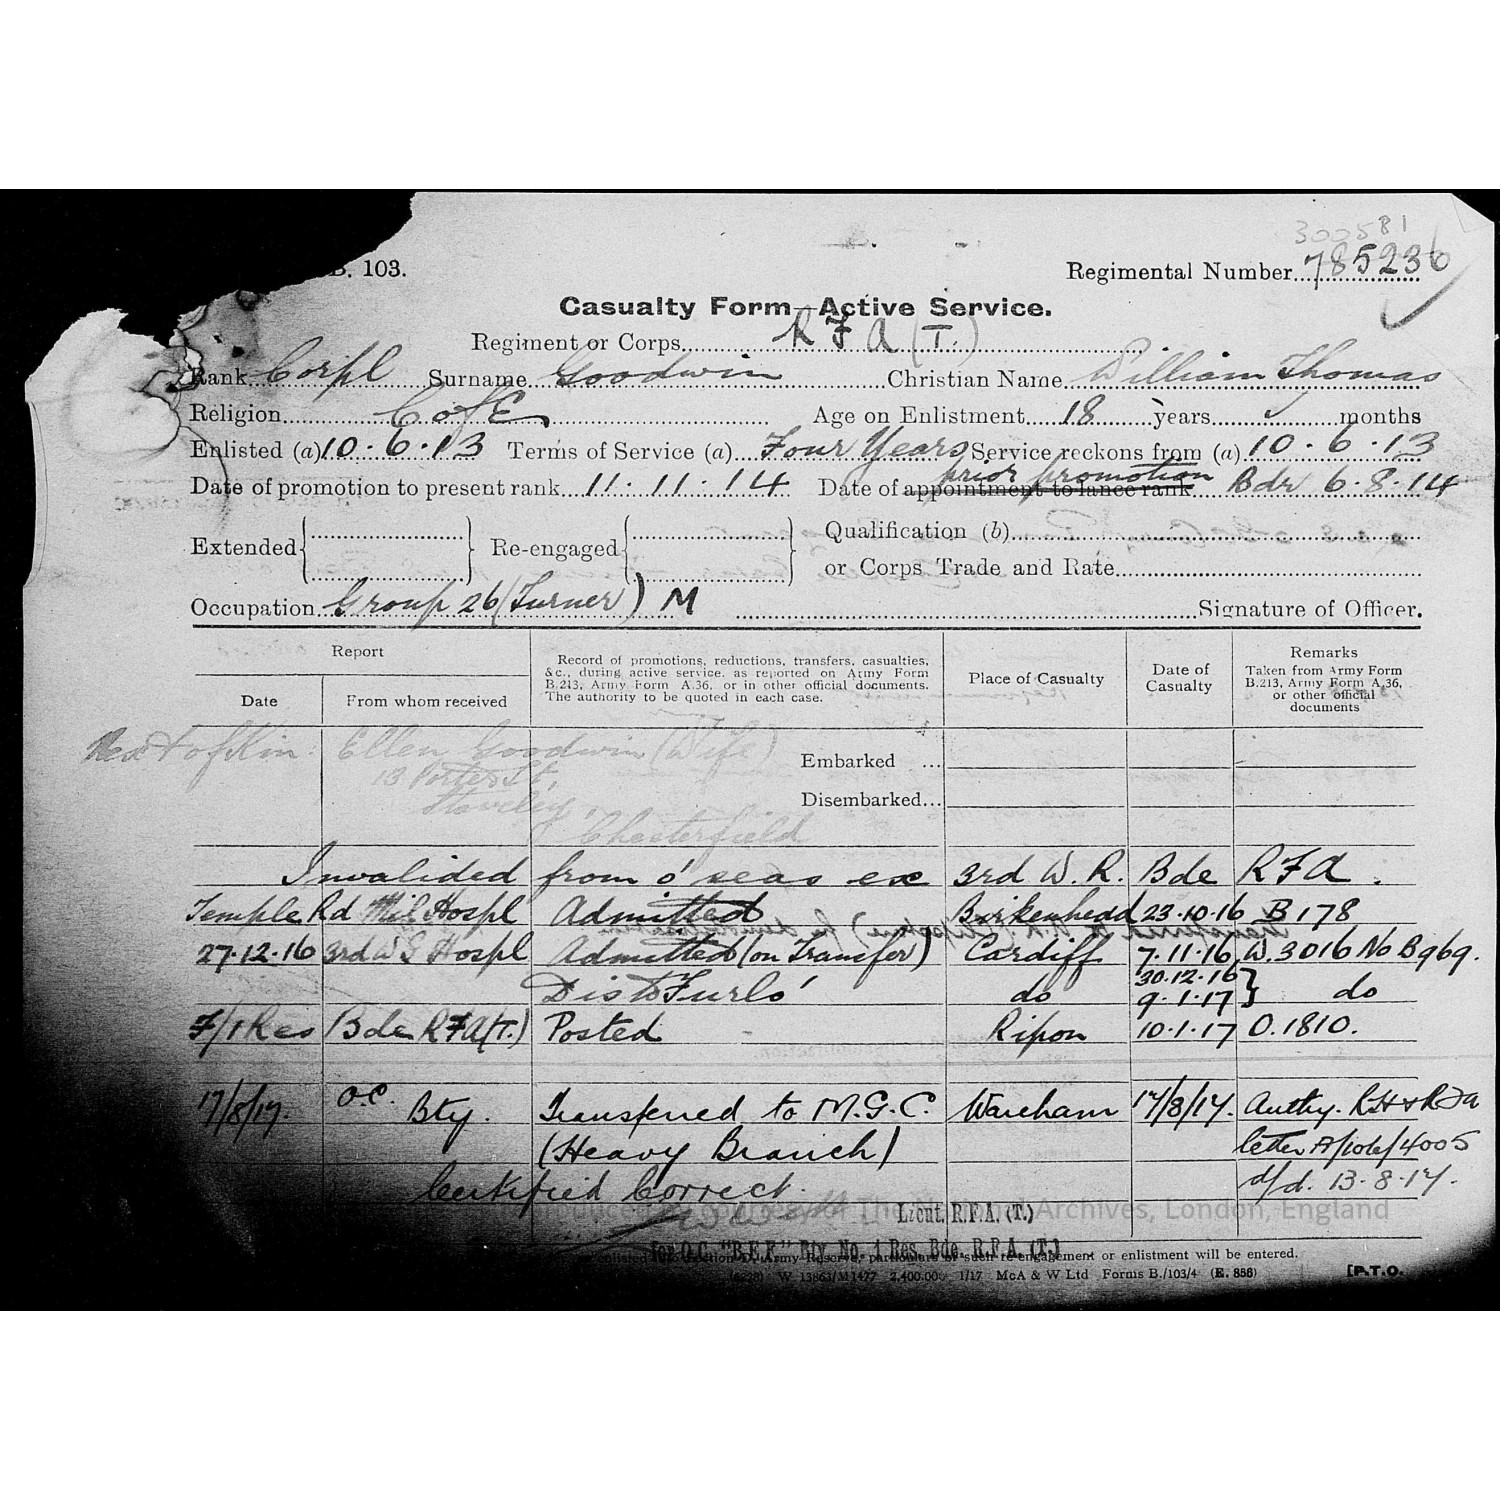 300581
B. 103.
Regimental Number 785236
Casualty Form—Active Service.
Regiment or Corps R F A (T.)
Rank Corpl Surname Goodwin Christian Name William Thomas
Religion C of E Age on Enlistment 18 years months
Enlisted (a) 10.6.13 Terms of Service (a) Four Years Service reckons from (a) 10.6.13
prior promotion
Date of promotion to present rank 11.11.14 Date of appointment to lance rank Bdr 6.8.14
Extended Re-engaged Qualification (b)
or Corps Trade and Rate
Occupation Group 26 (Turner) M Signature of Officer.
Report
Date From whom received
Record of promotions, reductions, transfers, casualties, &c., during active service, as reported on Army Form B.213, Army Form A.36, or in other official documents. The authority to be quoted in each case.
Place of Casualty
Date of Casualty
Remarks
Taken from Army Form B.213, Army Form A.36, or other official documents
Next of Kin: Ellen Goodwin (Wife)
13 Porter St,
Staveley,
Chesterfield
Embarked ...
Disembarked...
Invalided from o'seas ex 3rd W. R. Bde RFA.
Temple Rd Mil Hospl Admitted Birkenhead 23.10.16 B178
27.12.16 3rd W G Hospl Admitted (on Transfer) Cardiff 7.11.16 W.3016 No B969.
Dis to Furlo' do 30.12.16 9.1.17 } do
F/1 Res Bde RFA(T.) Posted Ripon 10.1.17 O.1810.
17/8/17. O.C. Bty. Transferred to M.G.C. Wareham 17/8/17. Authy. RH & RFA
(Heavy Branch) letter A/1061/4005
d/d. 13.8.17.
Certified Correct.
Lieut. R.F.A. (T.)
The National Archives, London, England
for O.C. "B.E.F." Bty. No. 1 Res. Bde. R.F.A. (T.)
enlisted into Section D, Army Reserve, particulars of such re-engagement or enlistment will be entered.
W 13863/M1477 2,400,000 1/17 McA & W Ltd Forms B./103/4 (E. 856) [P.T.O.